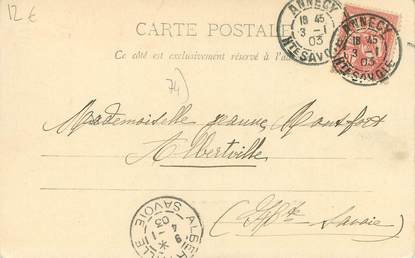 12€
CARTE POSTALE
Ce côté est exclusivement réservé à l'adresse
ANNECY
18 45
3 -1
03
HTE SAVOIE
ANNECY
18 45
3 -1
03
HTE SAVOIE
74)
Mademoiselle Jeanne Montfort
Albertville
(Hte Savoie)
ALBERTVILLE
9
4 -1
03
SAVOIE